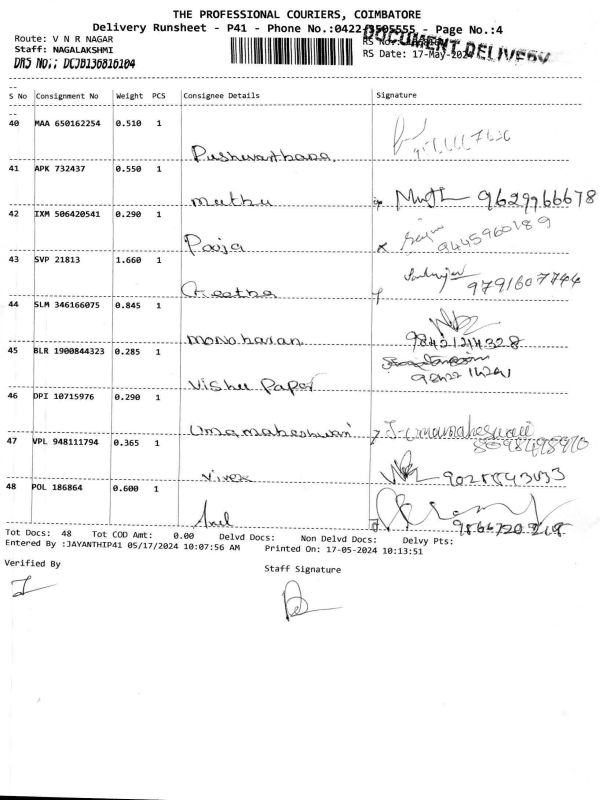 THE PROFESSIONAL COURIERS, COIMBATORE
Delivery Runsheet - P41 - Phone No.:0422 3505555 - Page No.:4
DOCUMENT DELIVERY
Route: V N R NAGAR
RS No.:
Staff: NAGALAKSHMI
RS Date: 17-May-2024
DRS NO.: DCJB136816104
--
S No Consignment No Weight PCS Consignee Details Signature
--
40 MAA 650162254 0.510 1
Pushvanthana
41 APK 732437 0.550 1
muthu 9629966678
42 IXM 506420541 0.290 1
Pooja 9445960189
43 SVP 21813 1.660 1
Geetha 9791607744
44 SLM 346166075 0.845 1
monoharan 98421244328
45 BLR 1900844323 0.285 1
Vishu Paper
46 DPI 10715976 0.290 1
Umamaheshwari J-Umamaheswari
47 VPL 948111794 0.365 1
Vivek
48 POL 186864 0.600 1
Anil
Tot Docs: 48 Tot COD Amt: 0.00 Delvd Docs: Non Delvd Docs: Delvy Pts:
Entered By :JAYANTHIP41 05/17/2024 10:07:56 AM Printed On: 17-05-2024 10:13:51
Verified By
Staff Signature